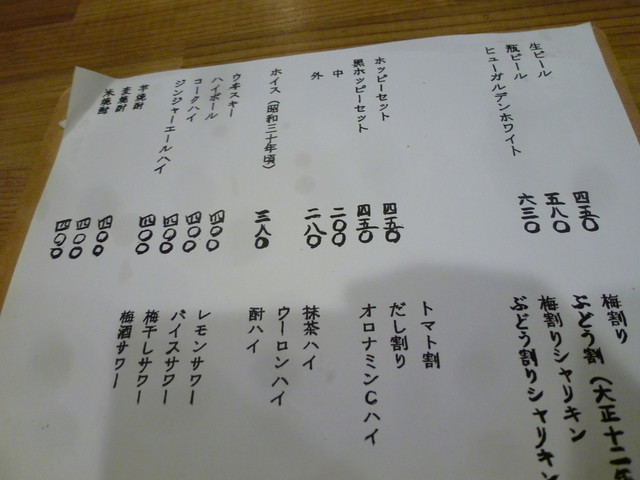 生ビール 四五〇
瓶ビール 五八〇
ヒューガルデンホワイト 六三〇
ホッピーセット 四五〇
黒ホッピーセット 四五〇
中 二〇〇
外 二八〇
ホイス（昭和三十年頃） 三八〇
ウヰスキー 四〇〇
ハイボール 四〇〇
コークハイ 四〇〇
ジンジャーエールハイ 四〇〇
芋焼酎 四〇〇
麦焼酎 四〇〇
米焼酎 四〇〇
梅割り
ぶどう割（大正十二年
梅割りシャリキン
ぶどう割りシャリキン
トマト割
だし割り
オロナミンCハイ
抹茶ハイ
ウーロンハイ
酎ハイ
レモンサワー
バイスサワー
梅干しサワー
梅酒サワー